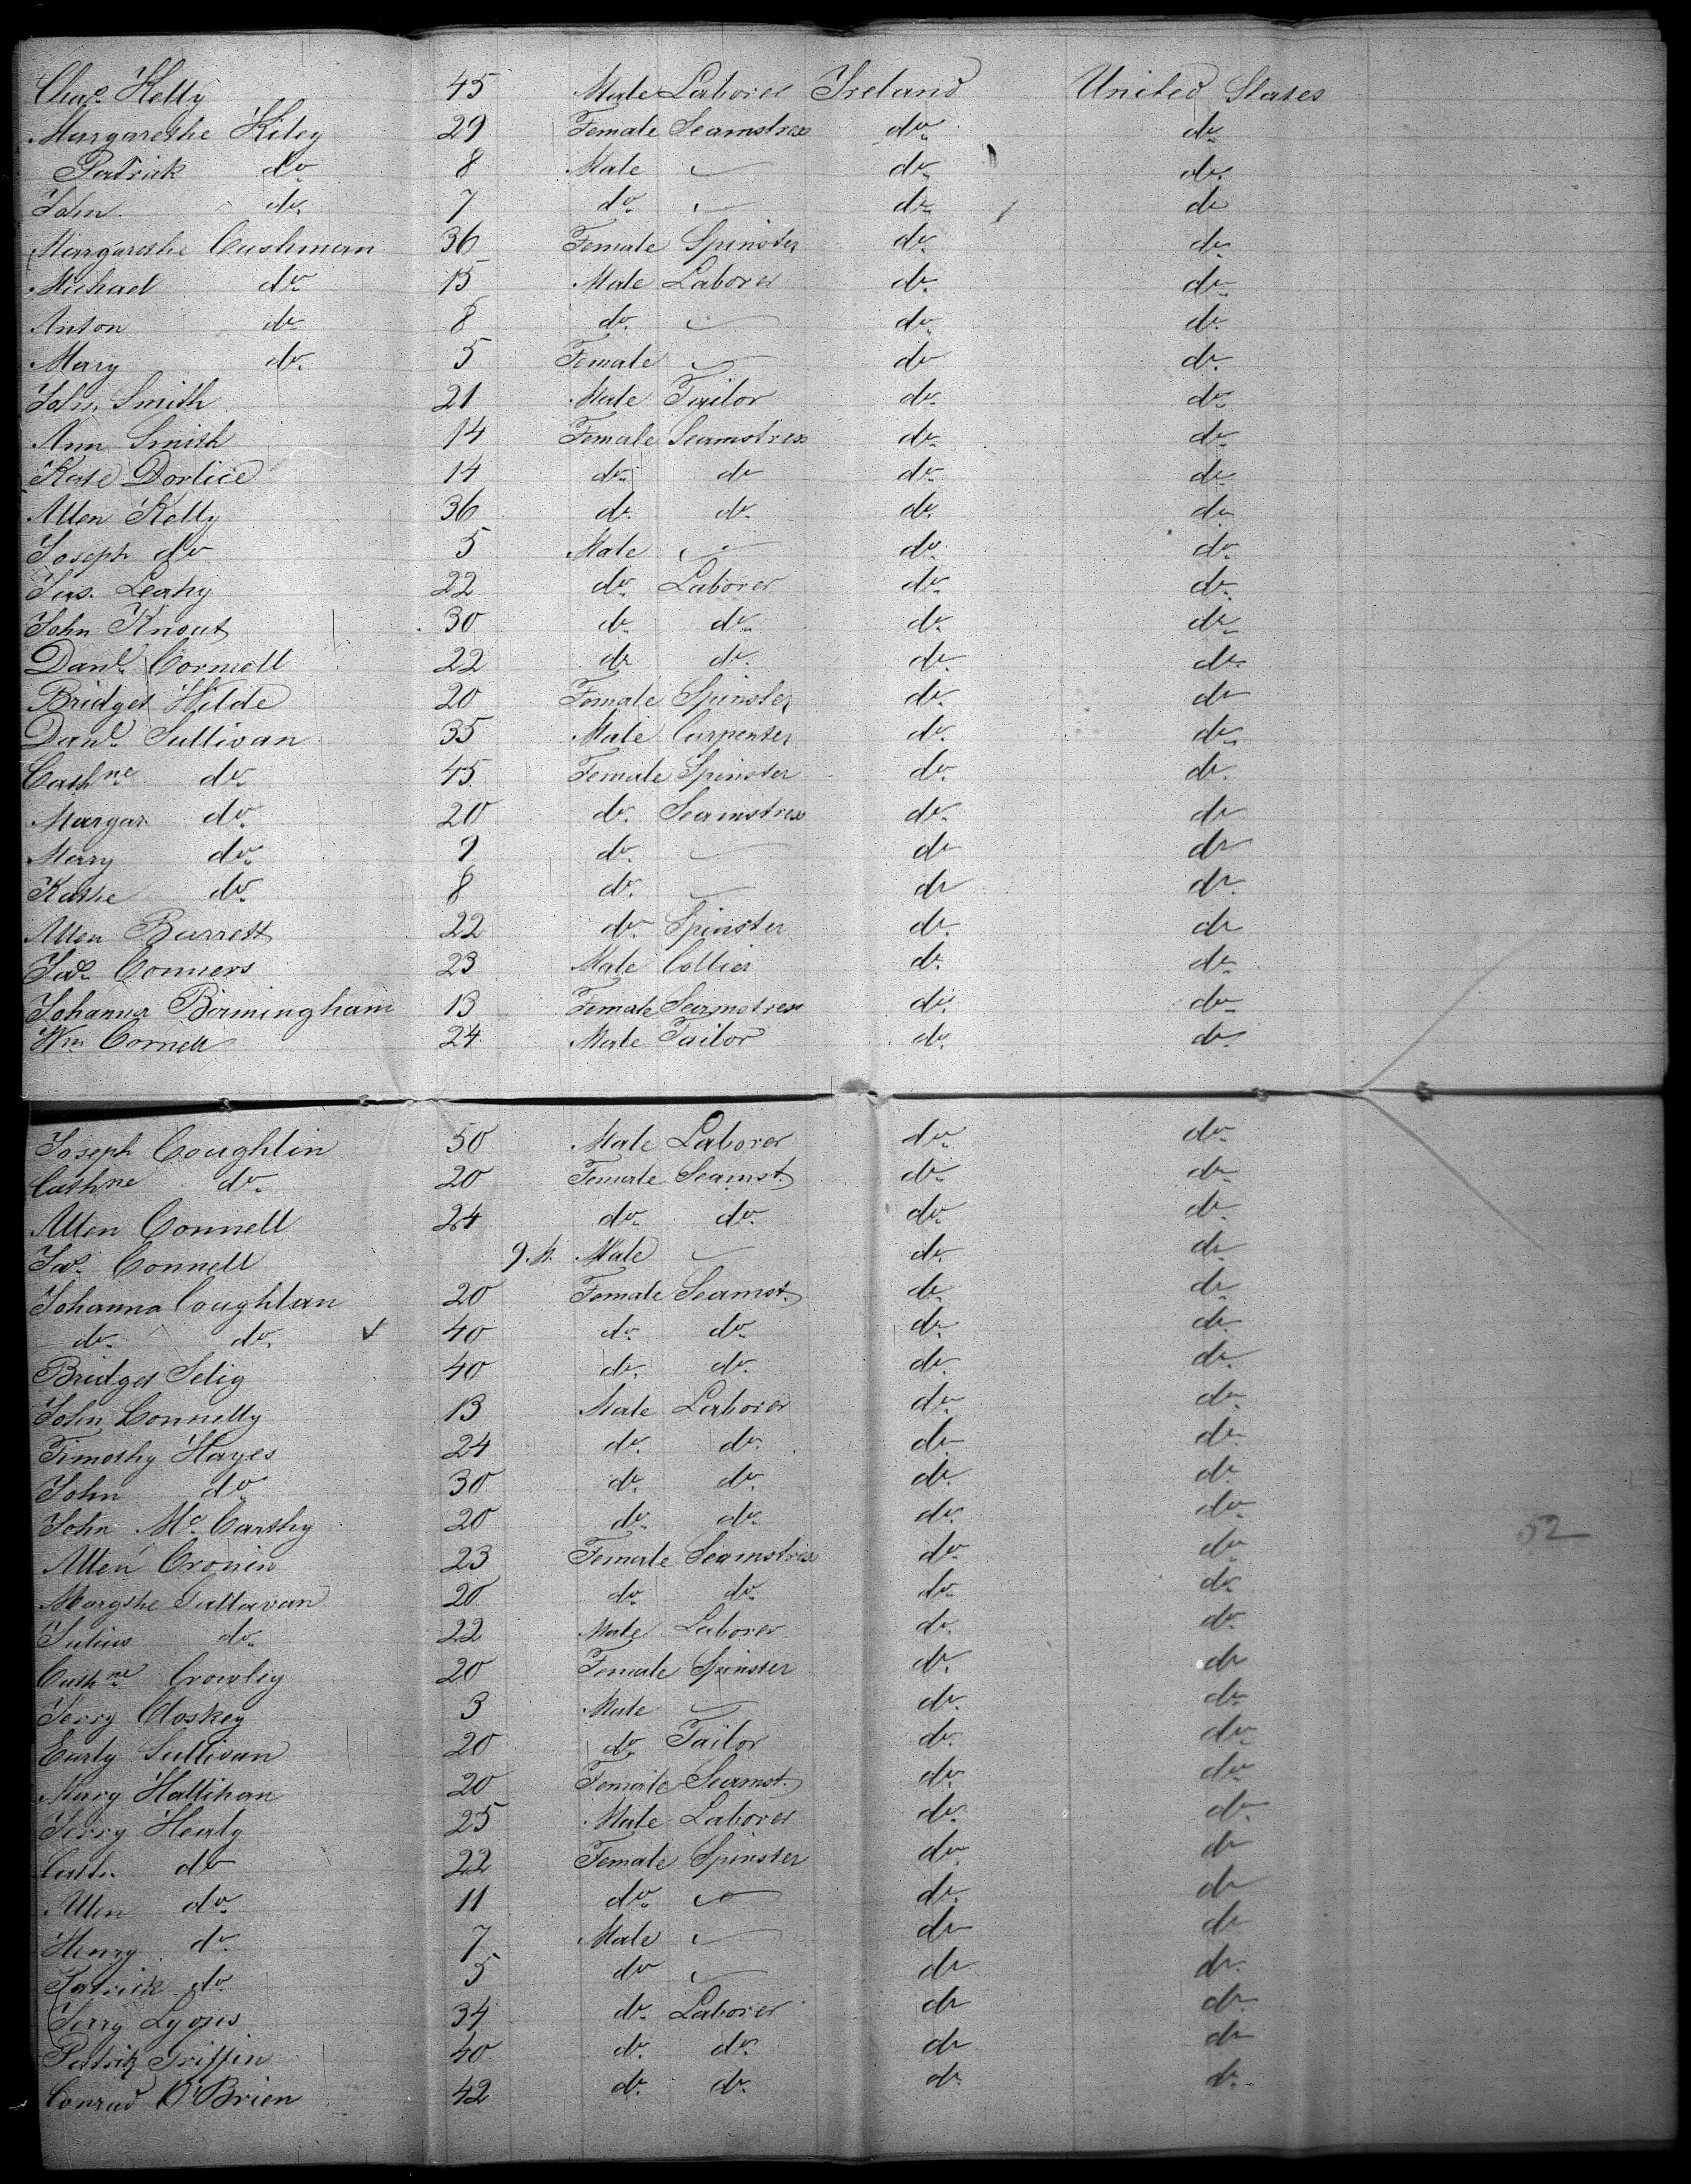 Chas. Kelly 45 Male Laborer Ireland United States
Margarethe Kiley 29 Female Seamstress do. do.
Patrick do. 8 Male do. do.
John do. 7 do. do. do
Margarethe Cushman 36 Female Spinster do. do.
Michael do. 15 Male Laborer do. do.
Anton do 8 do. do. do.
Mary do. 5 Female do do.
John Smith 21 Male Tailor do. do.
Ann Smith 14 Female Seamstress do. do.
Kate Dorlice 14 do. do do. do.
Allen Kelly 36 do. do. do. do.
Joseph do 5 Male do. do.
Jas. Leahy 22 do. Laborer do. do.
John Knout 30 do. do. do. do.
Danl. Cornell 22 do do. do. do.
Bridget Hilde 20 Female Spinster do. do
Danl. Sullivan 35 Male Carpenter do. do.
Cathne do. 45 Female Spinster do. do.
Margar. do. 20 do. Seamstress do. do
Mary do. 9 do. do do
Kathe do. 8 do. do do.
Allen Barrett 22 do. Spinster do. do
Jas. Conners 23 Male Collier do. do.
Johanna Birmingham 13 Female Seamstress do. do.
Wm Cornell 24 Male Tailor do. do.
Joseph Coughlin 50 Male Laborer do. do.
Cathne do. 20 Female Seamst. do. do.
Allen Connell 24 do. do. do. do.
Jas. Connell 9. Male do. do.
Johanna Coughlan 20 Female Seamst. do. do.
do. do. 40 do. do. do. do.
Bridget Selig 40 do. do. do. do.
John Connelly 13 Male Laborer do. do.
Timothy Hayes 24 do. do. do. do.
John do. 30 do. do. do. do.
John McCarthy 20 do. do. do. do.
Allen Cronin 23 Female Seamstress do. do.
Margthe Sullavan 20 do. do. do. do.
Julius do. 22 Male Laborer do. do.
Cathne Crowley 20 Female Spinster do. do
Jerry Closkey 3 Male do. do.
Early Sullivan 20 do. Tailor do. do.
Mary Hallihan 20 Female Seamst. do. do.
Jerry Healy 25 Male Laborer do. do.
Cath. do 22 Female Spinster do. do
Allen do. 11 do. do. do
Henry do. 7 Male do do
Patrick do. 5 do do do.
Jerry Lyons 34 do. Laborer do do.
Patrik Griffin 40 do. do. do do
Conrad O'Brien 42 do. do. do. do.
52